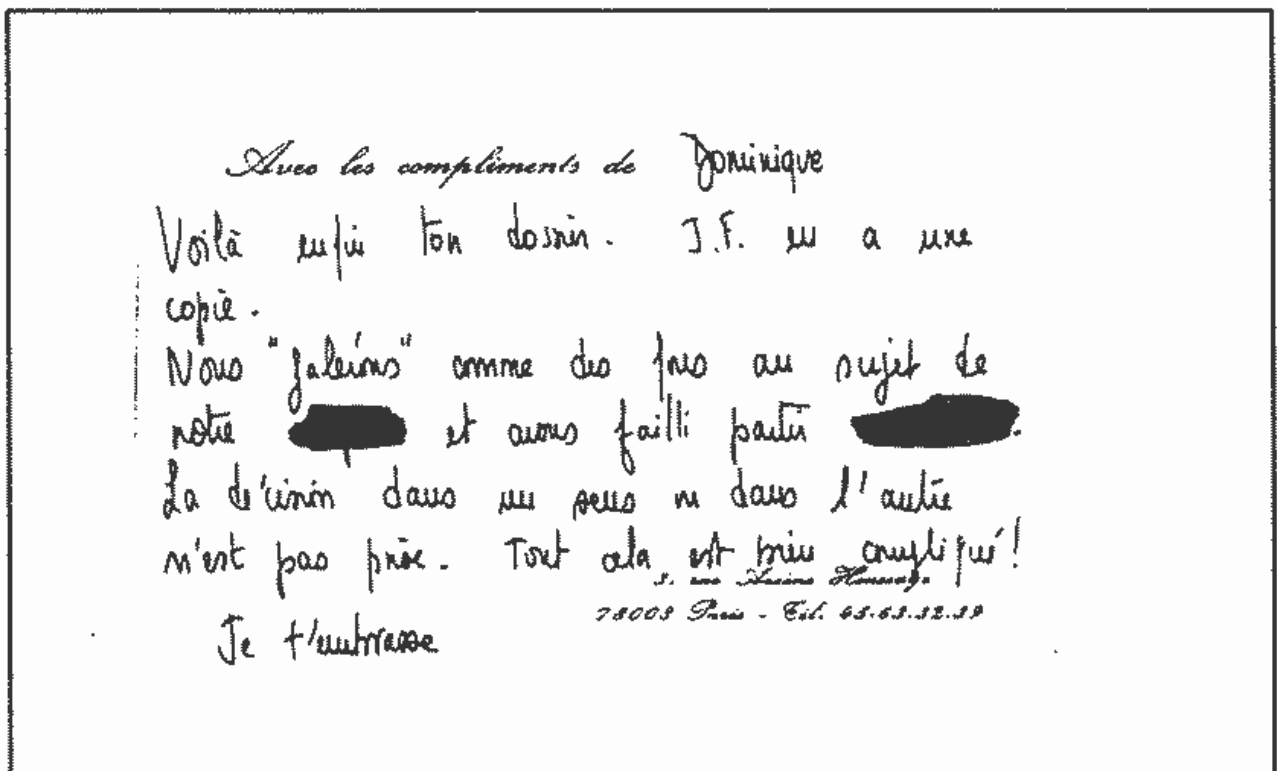 Avec les compliments de Dominique
Voilà enfin ton dossier. J.F. en a une
copie.
Nous "galérons" comme des fous au sujet de
notre et avons failli partir
La décision dans un sens ni dans l'autre
n'est pas prise. Tout cela est bien compliqué!
3, rue
75008 Paris - Tél.
Je t'embrasse